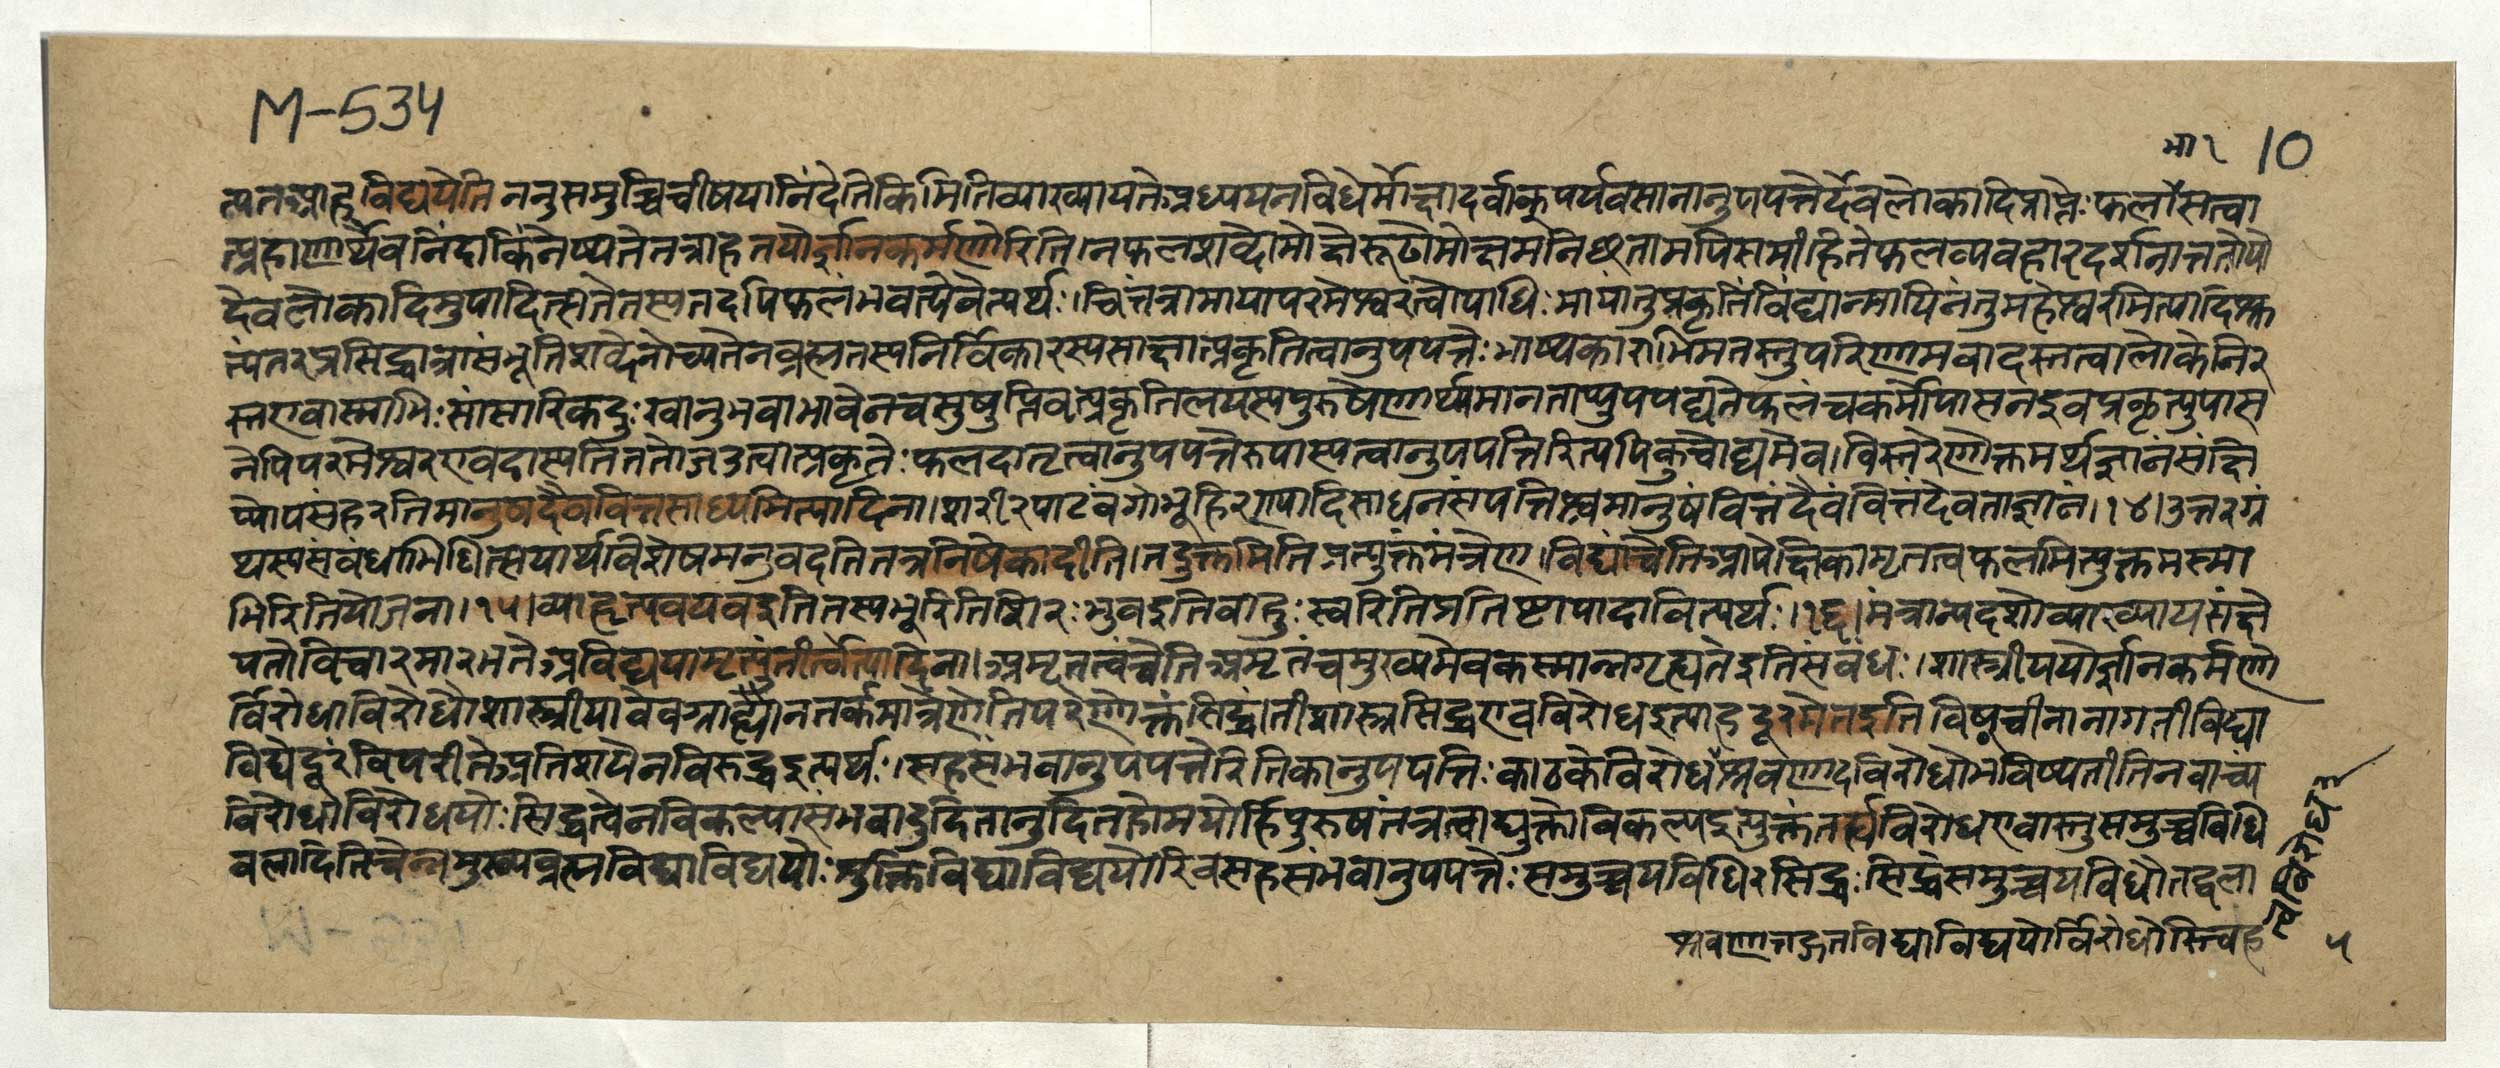 M-534
भा १ 10
त्यतआह विद्ययेति ननुसमुच्चिचीषयानिंदेतिकिमितिव्याख्यायतेअध्ययनविधेर्मोक्षादर्वाक्पर्यवसानानुपपत्तेर्देवलोकादिप्राप्तेः फलासत्वा
त्प्रहाणार्थैवनिंदाकिंनेष्यतेतत्राहतयोर्ज्ञानकर्मणोरिति।नफलशब्दोमोक्षेरूढोमोक्षमनिच्छतामपिसमीहितेफलव्यवहारदर्शनात्ततोयो
देवलोकादिमुपादित्सतेतस्यतदपिफलंभवत्येवेत्यर्थः।चिंतत्रामायापरमेश्वरत्वोपाधिः मायांतुप्रकृतिंविंद्यान्मायिनंतुमहेश्वरमित्यादिश्रु
त्यंतरप्रसिद्धात्रासंभूतिशब्देनोच्यतेनब्रह्मतस्यनिर्विकारस्यसाक्षात्प्रकृतित्वानुपपत्तेःभाष्यकाराभिमतस्तुपरिणामवादस्तत्वालोकेनिर
स्तएवास्माभिःसांसारिकदुःखानुभवाभावेनचसुषुप्तिवत्प्रकृतिलयस्यपुरुषेणार्थ्यमानताप्युपपद्यतेफलंचकर्मोपासनइवप्रकृत्युपास
नेपिपरमेश्वरएवदास्यतिततोजडत्वात्प्रकृतेःफलदातृत्वानुपपत्तेरुपास्यत्वानुपपत्तिरित्यपिकुचोद्यमेव।विस्तरेणोक्तमर्थज्ञानंसंक्षि
प्योपसंहरतिमानुषदैववित्तसाध्यमित्यादिना।शरीरपाटवंगोभूहिरण्यादिसाधनसंपत्तिश्चमानुषंवित्तंदैवंवित्तंदेवताज्ञानं।१४।उत्तरग्रं
थस्यसंबंधाभिधित्सयार्थविशेषमनुवदतितत्रनिषेकादीति।तदुक्तमितिप्रत्युक्तंमंत्रेण।विद्यांचेतिआपेक्षिकामृतत्वफलमित्युक्तमस्मा
भिरितियोजना।१५।व्याहृत्यवयवइतितस्यभूरितिशिरःभुवइतिबाहुःस्वरितिप्रतिष्टापादावित्यर्थः।१६।मंत्रान्पदशोव्याख्यायसंक्षे
पतोविचारमारभतेअविद्ययामृत्युंतीर्त्वेत्यादिना।अमृतत्वंचेतिअमृतंचमुख्यमेवकस्मान्नगृह्यतइतिसंबंधः।शास्त्रीययोर्ज्ञानकर्मणो
र्विरोधाविरोधौशास्त्रीयावेवग्राह्यौनतर्कमात्रेणेतिपरेणोक्तंसिद्धांतीशास्त्रसिद्धएवविरोधइत्याहदूरमेतेइतिविषूचीनानागतीविद्या
विद्येदूरंविपरीतेअतिशयेनविरुद्धइत्यर्थः।सहसंभवानुपपत्तेरितिकानुपपत्तिःकाठकेविरोधश्रवणादविरोधोभविष्यतीतिनवाच्यं
विरोधाविरोधयोःसिद्धत्वेनविकल्पासंभवादुदितानुदितहोमयोर्हिपुरुषतंत्रत्वाद्युक्तोविकल्पइत्युक्तंतर्ह्यविरोधएवास्तुसमुच्चयविधि
बलादितिचेन्नमुख्यब्रह्मविद्याविद्ययोःशुक्तिविद्याविद्ययोरिवसहसंभवानुपपत्तेःसमुच्चयविधिरसिद्धःसिद्धेसमुच्चयविधौतद्बला
५